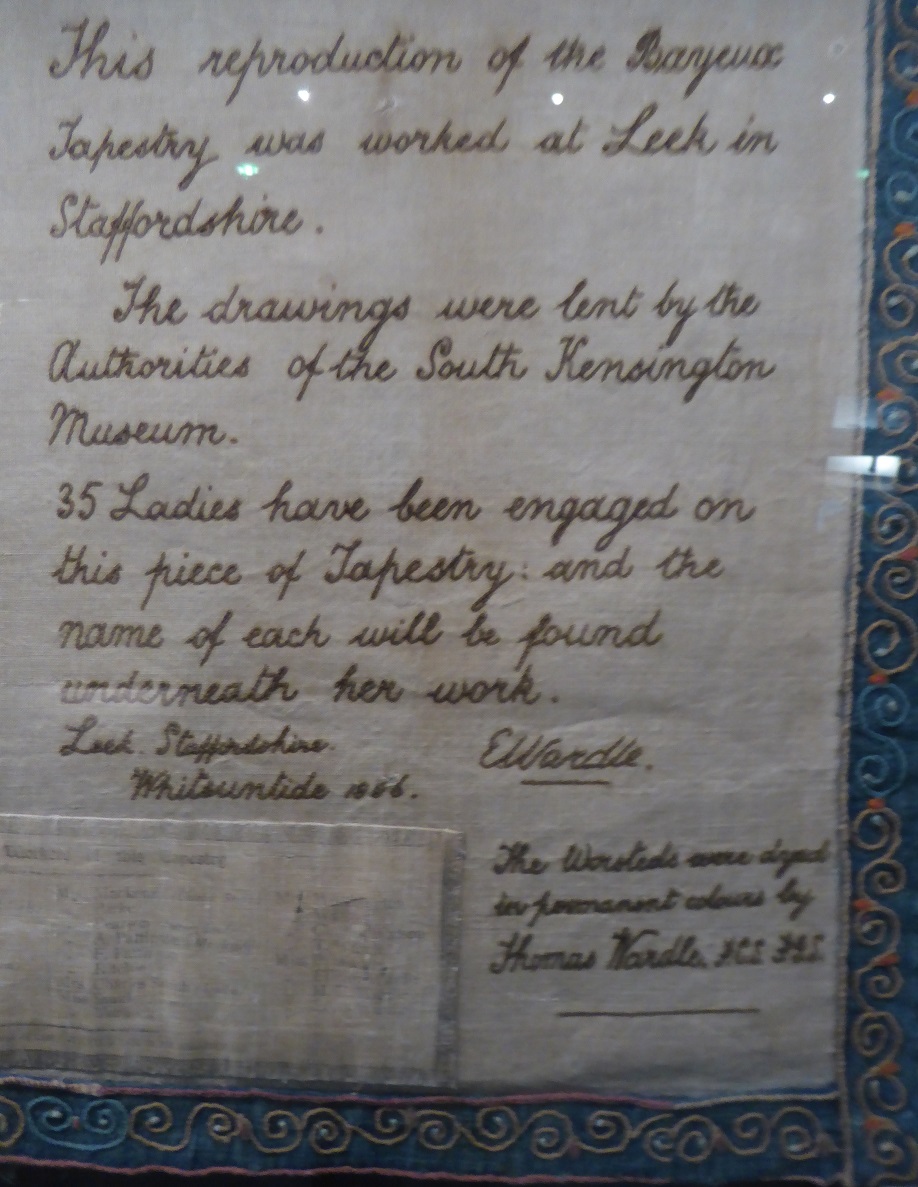 This reproduction of the Bayeux
Tapestry was worked at Leek in
Staffordshire.
The drawings were lent by the
Authorities of the South Kensington
Museum.
35 Ladies have been engaged on
this piece of Tapestry: and the
name of each will be found
underneath her work.
Leek. Staffordshire.
Whitsuntide 1886.
EWardle.
The Worsteds were dyed
in permanent colours by
Thomas Wardle, F.C.S. F.G.S.